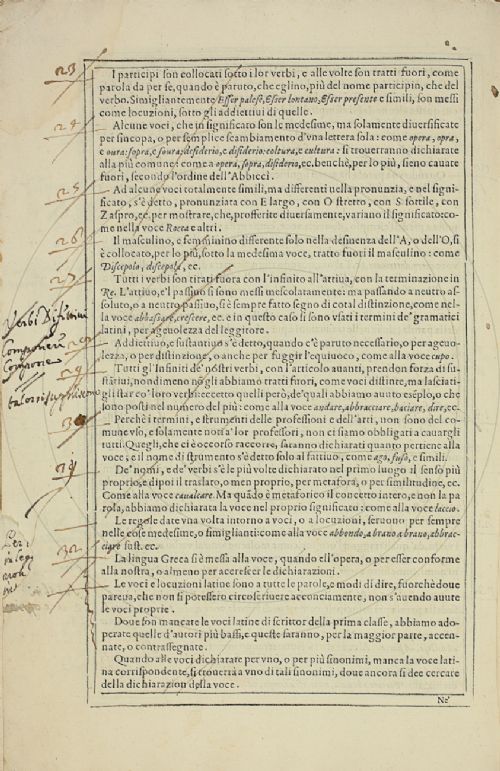 23
I participi son collocati sotto i lor verbi, e alle volte son tratti fuori, come
parola da per se, quando è paruto, che eglino, più del nome participin, che del
verbo. Simigliantemente Esser palese, Esser lontano, Esser presente e simili, son messi
come locuzioni, sotto gli addiettiui di quelle.
24
Alcune voci, che in significato son le medesime, ma solamente diuersificate
per sincopa, o per semplice scambiamento d'vna lettera sola: come opera, opra,
e oura: sopra, e soura: desiderio, e disiderio: coltura, e cultura: si trouerranno dichiarate
alla più comune: come a opera, sopra, disiderio, ec. benchè, per lo più, sieno cauate
fuori, secondo l'ordine dell'Abbicci.
25
Ad alcune voci totalmente simili, ma differenti nella pronunzia, e nel signi-
ficato, s'è detto, pronunziata con E largo, con O stretto, con S sottile, con
Z aspro, ec. per mostrare, che, profferite diuersamente, variano il significato: co-
me nella voce Rocca e altri.
26
Il masculino, e femminino differente solo nella desinenza dell'A, o dell'O, si
è collocato, per lo più, sotto la medesima voce, tratto fuori il masculino: come
Discepolo, discepola, ec.
27
Tutti i verbi son tirati fuora con l'infinito all'attiua, con la terminazione in
Re. L'attiuo, e'l passiuo si sono messi mescolatamente: ma passando a neutro as-
soluto, o a neutro passiuo, si è sempre fatto segno di cotal distinzione, come nel-
la voce abbassare, crescere, ec. e in questo caso si sono vsati i termini de' gramatici
latini, per ageuolezza del leggitore.
Verbi
28
Addiettiuo, e sustantiuo s'è detto, quando c'è paruto necessario, o per ageuo-
lezza, o per distinzione, o anche per fuggir l'equiuoco, come alla voce cupo.
Compone
29
Tutti gl'Infiniti de' nostri verbi, con l'articolo auanti, prendon forza di su-
stantiui, nondimeno no gli abbiamo tratti fuori, come voci distinte, ma lasciati-
gli star co' loro verbi: eccetto quelli però, de' quali abbiamo auuto esemplo, o che
sono posti nel numero del più: come alla voce andare, abbracciare, baciare, dire, ec.
30
Perchè i termini, e strumenti delle professioni e dell'arti, non sono del co-
mune vso, e solamente noti a' lor professori, non ci siamo obbligati a cauargli
tutti. Quegli, che ci è occorso raccorre, saranno dichiarati quanto pertiene alla
voce, e il nome di strumento s'è detto solo al fattiuo, come ago, fuso, e simili.
31
De' nomi, e de' verbi s'è le più volte dichiarato nel primo luogo il senso più
proprio, e dipoi il traslato, o men proprio, per metafora, o per similitudine, ec.
Come alla voce caualcare. Ma quādo è metaforico il concetto intero, e non la pa
rola, abbiamo dichiarata la voce nel proprio significato: come alla voce laccio.
Le regole date vna volta intorno a voci, o a locuzioni, seruono per sempre
nelle cose medesime, o simiglianti: come alla voce abbondo, a brano, a brano, abbrac-
ciare sust. ec.
32
La lingua Greca si è messa alla voce, quando ell'opera, o per esser conforme
alla nostra, o almeno per accrescer le dichiarazioni.
Le voci e locuzioni latine sono a tutte le parole, e modi di dire, fuorchè doue
pareua, che non si potessero circoscriuere acconciamente, non s'auendo auute
le voci proprie.
Doue son mancate le voci latine di scrittor della prima classe, abbiamo ado-
perate quelle d'autori più bassi, e queste saranno, per la maggior parte, accen-
nate, o contrassegnate.
Quando alle voci dichiarate per vno, o per più sinonimi, manca la voce lati-
na corrispondente, si trouerrà a vno di tali sinonimi, doue ancora si dee cercare
della dichiarazion della voce.
Ne'